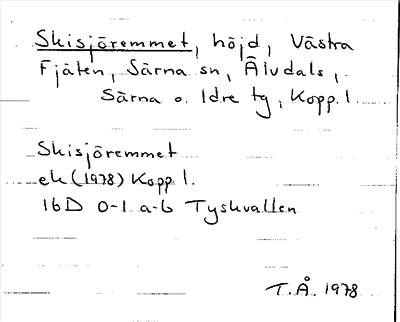 Skisjöremmet, höjd, Västra
Fjäten, Särna sn, Älvdals,
Särna o. Idre tg, Kopp. l.
Skisjöremmet
ek (1978) Kopp l.
16D 0-1 a-b Tyskvallen
T.Å. 1978